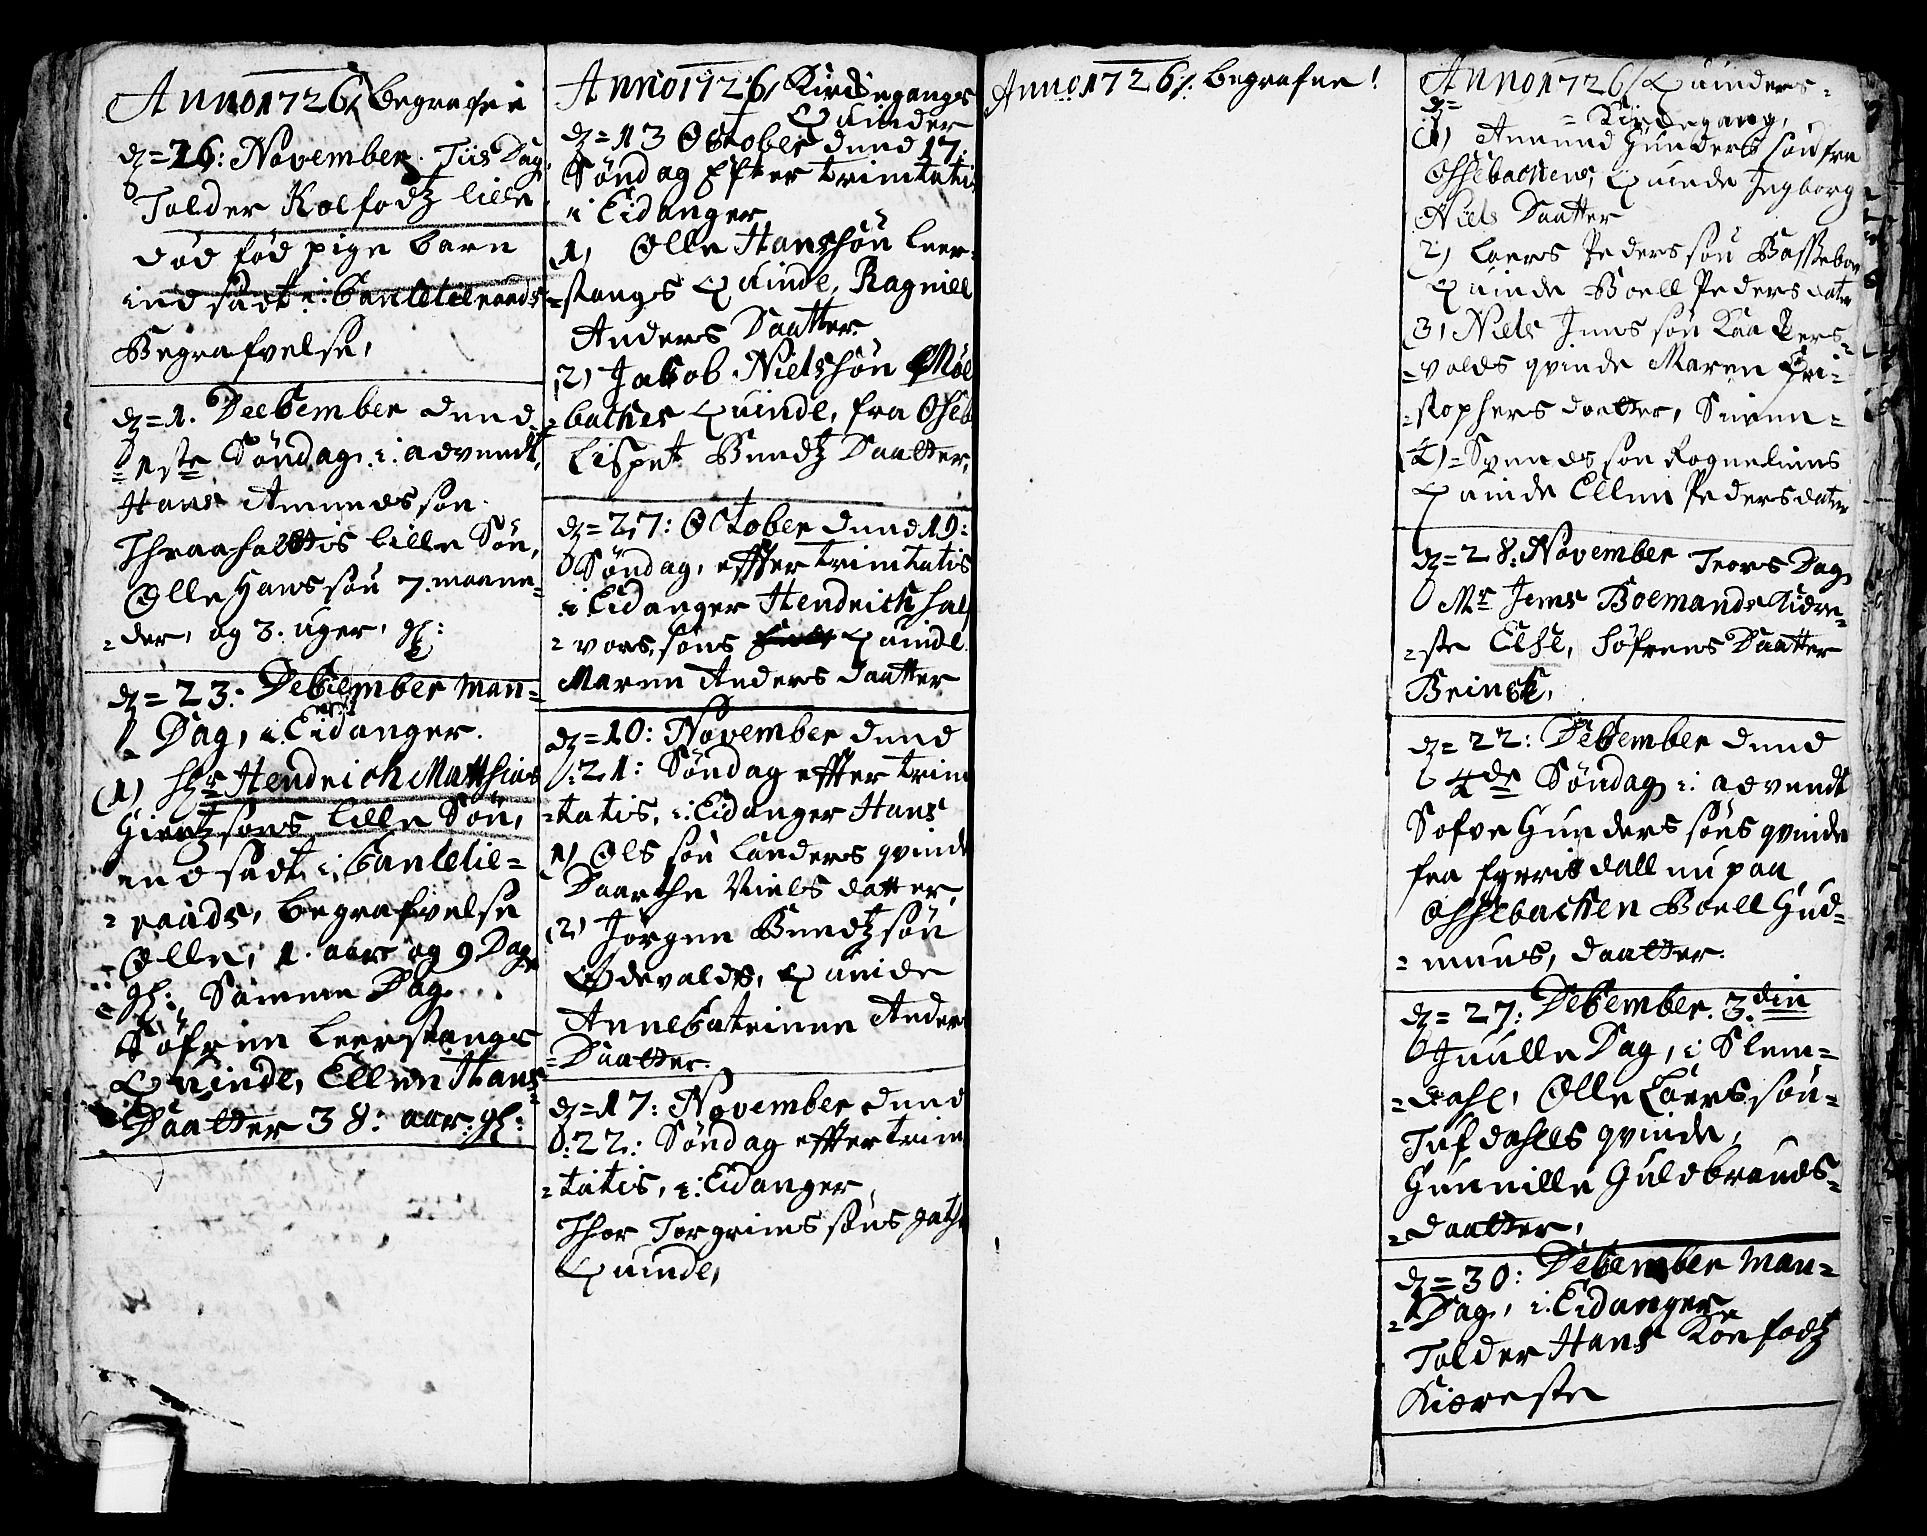 Anno 1726/ Begrafne
d= 26: November. Tiis Dag,
Tolder Kolfodtz lille
død fød pige barn
ind sadt i: Cancelie raads
Begrafvelse,
d= 1. December dend
1ste Søndag i: advendt,
Hans Amunds søn
Thraaholttis lille Søn,
Olle Hans søn 7. maane-
-der, og 3. uger, gl:
d= 23: December Man=
Dag, i: Eidanger.
(1) Hr Hendrich Matthias
Giertz søns lille Søn,
ind sadt i, Cancelie=
=raads, begrafvelse
Olle, 1. aar og 9 Dag
gl: Samme Dag
Søfren Leerstangs
Quinde, Ellen Hans=
Daatter 38: aar: gl:
Anno 1726/ Kirchegangs
Quinder
d= 13 October dend 17:
Søndag Efter trinitatis
i Eidanger
1) Olle Hanssøn Leer-
=stangs Quinde, Ragnill
Anders Daatter
2) Jakob Nielssøn Møl
=baches Quinde, fra Oseb
Lispet Bendtz Daatter,
d= 27: October dend 19:
Søndag, effter trinitatis
i Eidanger Hendrich Hal
=vors, søns Quinde
Maren Anders daatter
d= 10: November dend
:21: Søndag effter trini
=tatis, i: Eidanger Hans
1) Ols søn Landers qvinde
Daarthe Niels datter,
(2) Jørgen Bendtz søn
Ødevalds, Quinde
Annecatrinne Anders
=Daatter.
d= 17: November dend
:22: Søndag effter trini
=tatis, i: Eidanger
Thor Torgrims søns
Quinde,
Anno 1726/: Begrafne!
Anno 1726/ Quinders=
d= = Kirchegang,
(1) Amund Gunders søn fra
Ossebachen, Quinde Ingborg
Niels Daatter
2) Laers Peders søn Basseboe
Quinde Boell Pedersdatter
3) Niels Jens søn Kaa
=volds qvinde Maren Cri=
=stophers daatter,
(4)= Svends søn
Quinde Ellen Pedersdatter
d= 28: November Tors Dag
Mr Jens Boemands Kiære=
=ste Else, Søfrens Daatter
Brinck,
d= 22: December dend
4de Søndag i: advendt
Sofve Gunders søns qvinde
fra dall nu paa
Ossebachen Boell Gud=
=muns, daatter.
d= 27: December. 3.din
Juulle Dag, i Slem=
=dahl, Olle Laers søn=
Tufdahls qvinde,
Gunnille Guldbrands=
=daatter,
d= 30: December Man=
=Dag, i: Eidanger
Tolder Hans Kolfodtz
Kiæreste